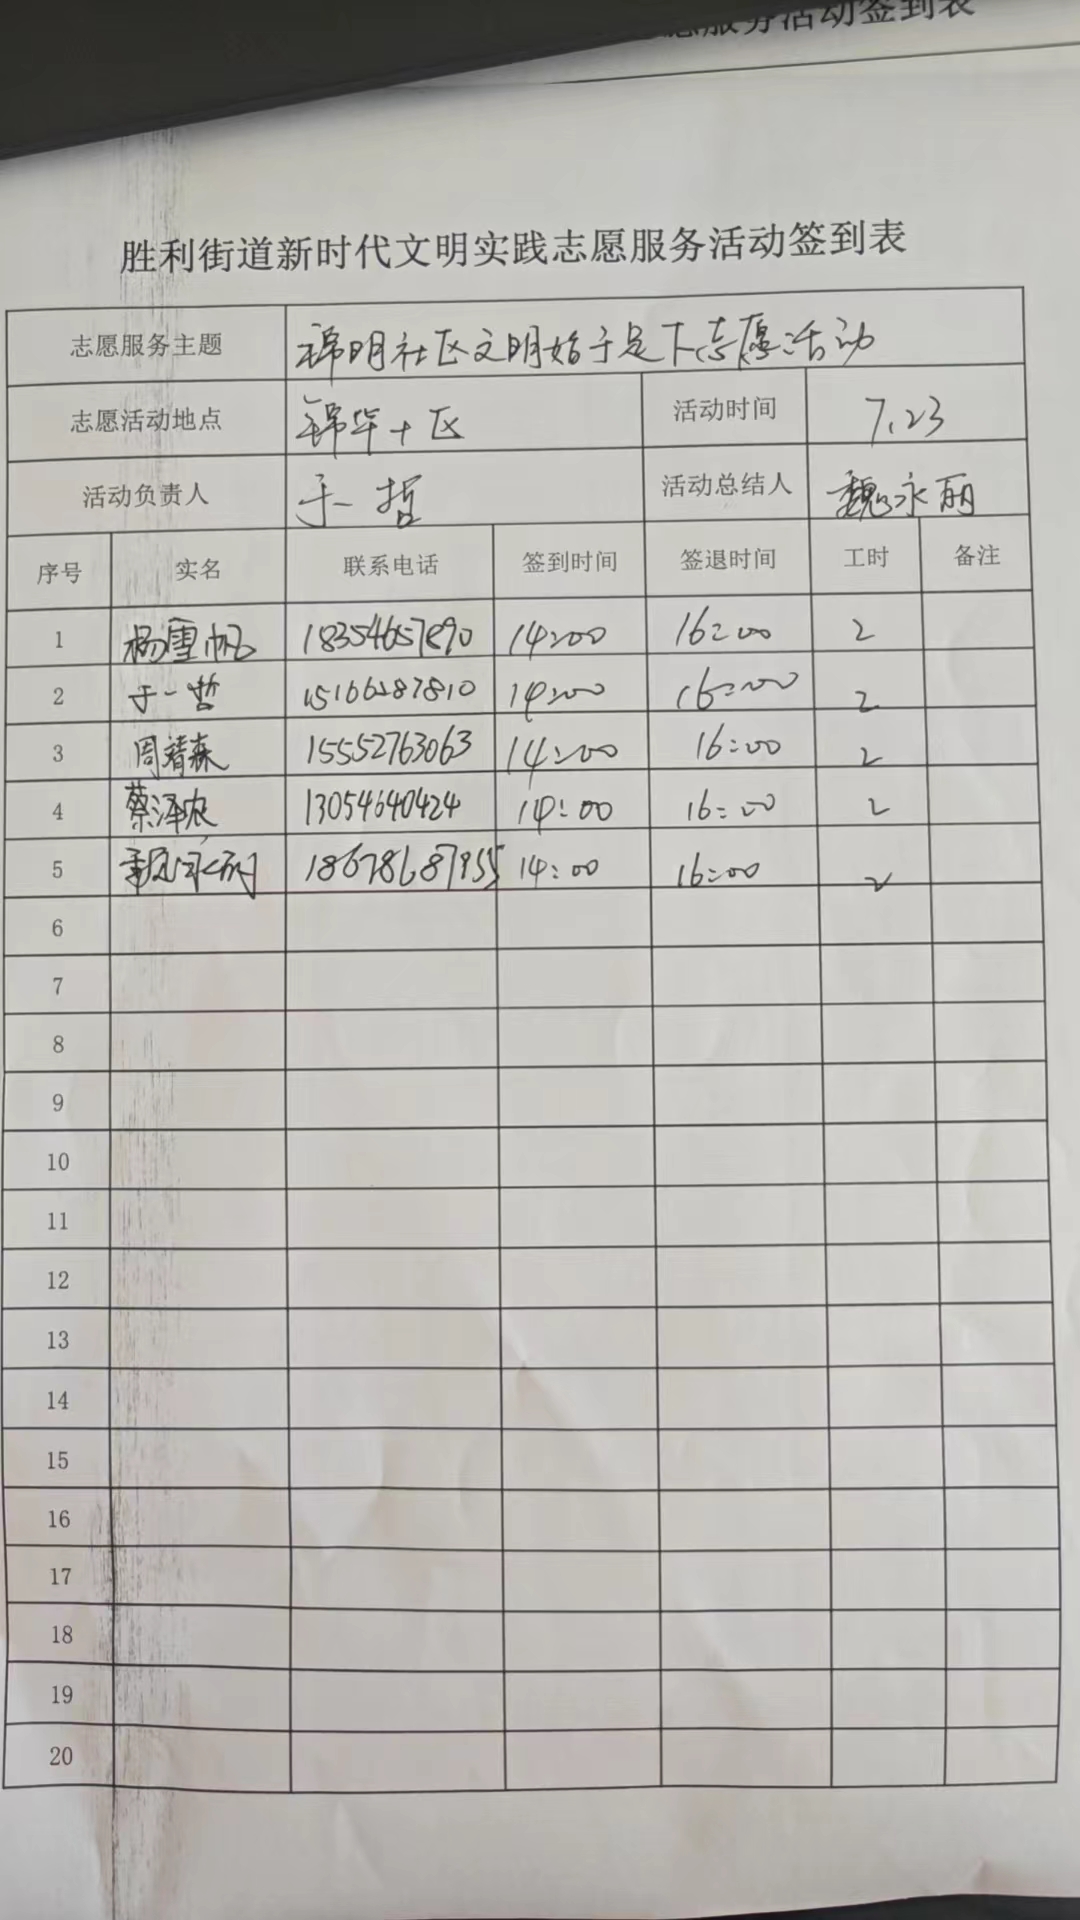 志愿服务活动签到表
胜利街道新时代文明实践志愿服务活动签到表
志愿服务主题 锦明社区文明始于足下志愿活动
志愿活动地点 锦华十区 活动时间 7.23
活动负责人 于一哲 活动总结人 魏永丽
序号 实名 联系电话 签到时间 签退时间 工时 备注
1 杨雪帆 18354657890 14:00 16:00 2
2 于一哲 15166287810 14:00 16:00 2
3 周靖森 15552763063 14:00 16:00 2
4 蔡泽农 13054640424 14:00 16:00 2
5 魏永丽 18678687955 14:00 16:00 2
6
7
8
9
10
11
12
13
14
15
16
17
18
19
20